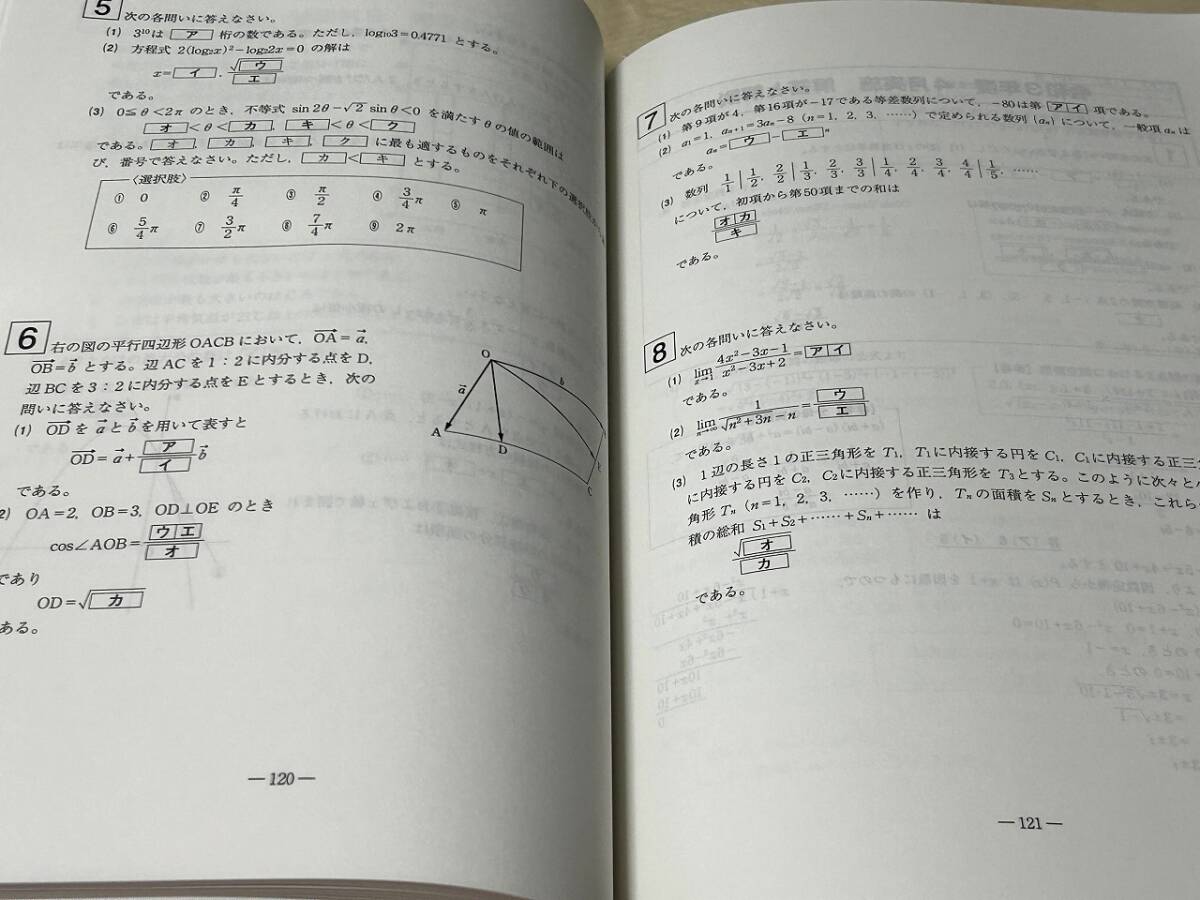 5 次の各問いに答えなさい。
(1) 3¹⁰は ア 桁の数である。ただし，log₁₀3=0.4771 とする。
(2) 方程式 2(log₂x)²−log₂2x=0 の解は
x= イ ，√ウ/エ
である。
(3) 0≦θ<2π のとき，不等式 sin2θ−√2 sinθ<0 を満たすθの値の範囲は
オ <θ< カ ， キ <θ< ク
である。 オ ， カ ， キ ， ク に最も適するものをそれぞれ下の選択肢
び，番号で答えなさい。ただし， カ < キ とする。
〈選択肢〉
① 0 ② π/4 ③ π/2 ④ 3/4 π ⑤ π
⑥ 5/4 π ⑦ 3/2 π ⑧ 7/4 π ⑨ 2π
6 右の図の平行四辺形 OACB において，OA→=a→，
OB→=b→とする。辺 AC を 1：2 に内分する点を D，
辺 BC を 3：2 に内分する点を E とするとき，次の
問いに答えなさい。
(1) OD→ を a→ と b→ を用いて表すと
OD→=a→+ア/イ b→
である。
2) OA=2，OB=3，OD⊥OE のとき
cos∠AOB=ウエ/オ
であり
OD=√カ
ある。
O
a→
b
A
D
C
—120—
7 次の各問いに答えなさい。
(1) 第9項が4，第16項が−17である等差数列について，−80は第 アイ 項である。
(2) a₁=1，aₙ₊₁=3aₙ−8（n=1，2，3，……）で定められる数列{aₙ}について，一般項aₙは
aₙ= ウ − エ ⁿ
である。
(3) 数列 1/1 | 1/2，2/2 | 1/3，2/3，3/3 | 1/4，2/4，3/4，4/4 | 1/5，……
について，初項から第50項までの和は
オカ/キ
である。
8 次の各問いに答えなさい。
(1) lim x→1 4x²−3x−1/x²−3x+2=アイ
である。
(2) lim n→∞ 1/√n²+3n−n=ウ/エ
である。
(3) 1辺の長さ1の正三角形をT₁，T₁に内接する円をC₁，C₁に内接する正三
に内接する円をC₂，C₂に内接する正三角形をT₃とする。このように次々と
角形Tₙ（n=1，2，3，……）を作り，Tₙの面積をSₙとするとき，これら
積の総和 S₁+S₂+……+Sₙ+…… は
√オ/カ
である。
—121—